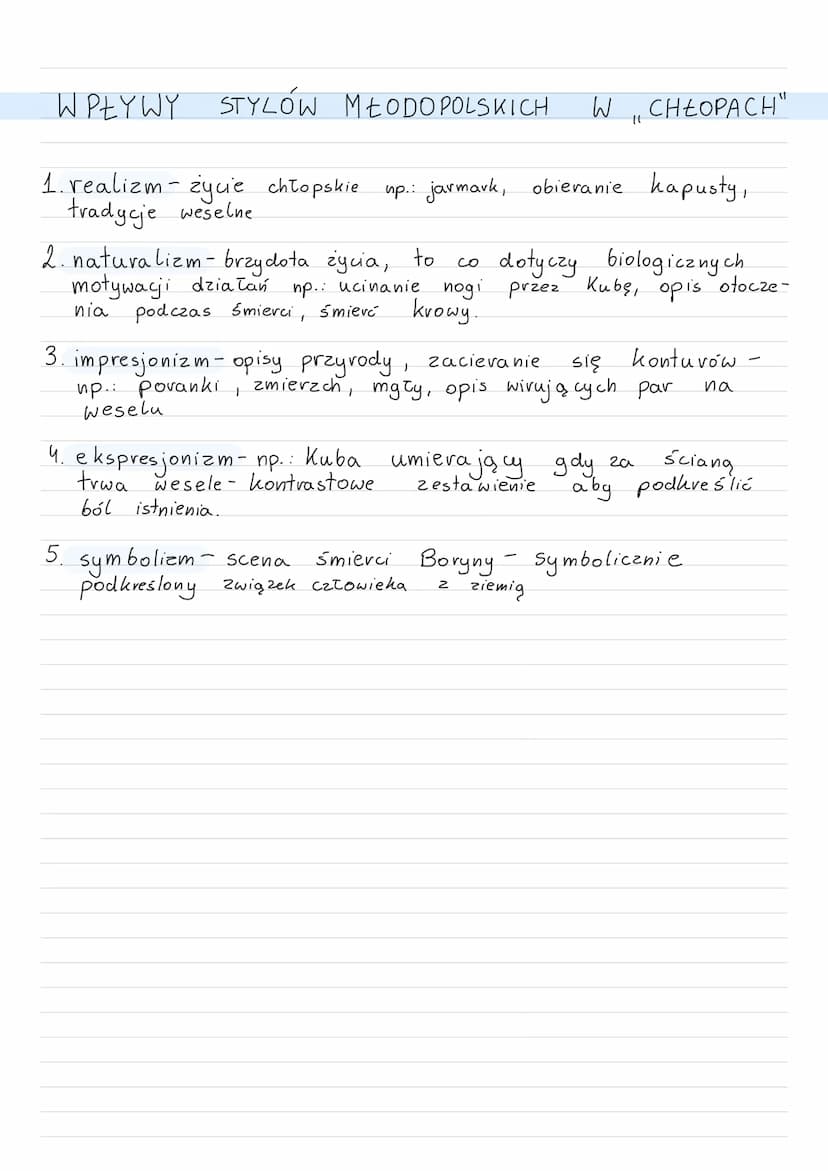 WPŁYWY STYLÓW MŁODOPOLSKICH W „CHŁOPACH"
1. realizm - życie chłopskie np.: jarmark, obieranie kapusty,
tradycje weselne
2. naturalizm - brzydota życia, to co dotyczy biologicznych
motywacji działań np.: ucinanie nogi przez Kubę, opis otocze-
nia podczas śmierci, śmierć krowy.
3. impresjonizm - opisy przyrody, zacieranie się konturów -
np.: poranki, zmierzch, mgły, opis wirujących par na
weselu
4. ekspresjonizm - np.: Kuba umierający gdy za ścianą
trwa wesele - kontrastowe zestawienie aby podkreślić
ból istnienia.
5. symbolizm - scena śmierci Boryny - symbolicznie
podkreślony związek człowieka z ziemią